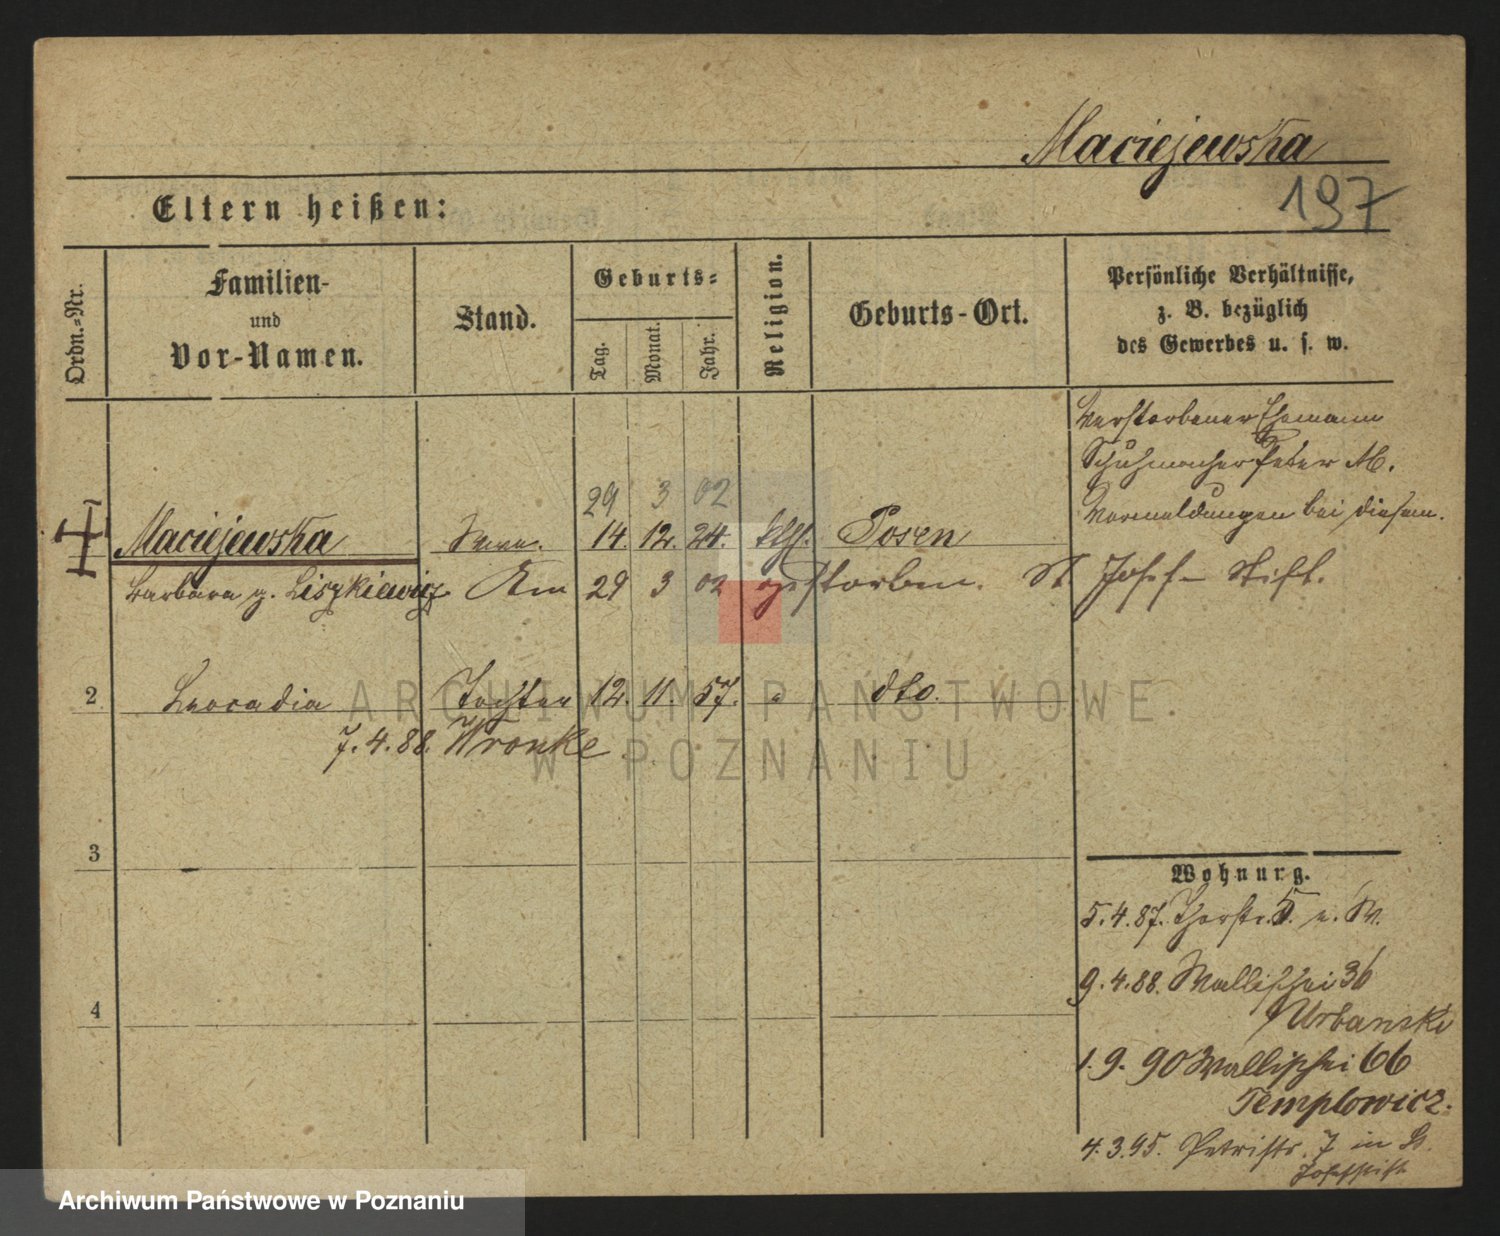 Maciejewska
197
Eltern heißen:
Ordn.-Nr.
Familien-
und
Vor-Namen.
Stand.
Geburts-
Tag.
Monat.
Jahr.
Religion.
Geburts-Ort.
Persönliche Verhältnisse,
z. B. bezüglich
des Gewerbes u. s. w.
Verstorbener Ehemann
Schuhmacher Peter M.
Vormeldungen bei diesem.
29 3 02
Maciejewska Wwe. 14. 12. 24. kth. Posen
Barbara g. Liszkiewicz Am 29 3 02 gestorben. St Josef-Stift.
2 Leocadia Tochter 12. 11. 57. " dto.
7.4.88. Wronke
3
4
Wohnung.
5.4.87. Thorstr. 5. u. W.
9.4.88. Wallischei 36
Urbanski
1.9.90 Wallischei 66
Templowicz.
4.3.95. Petristr. 7 in St.
Josefstift
ARCHIWUM PAŃSTWOWE
W POZNANIU
Archiwum Państwowe w Poznaniu